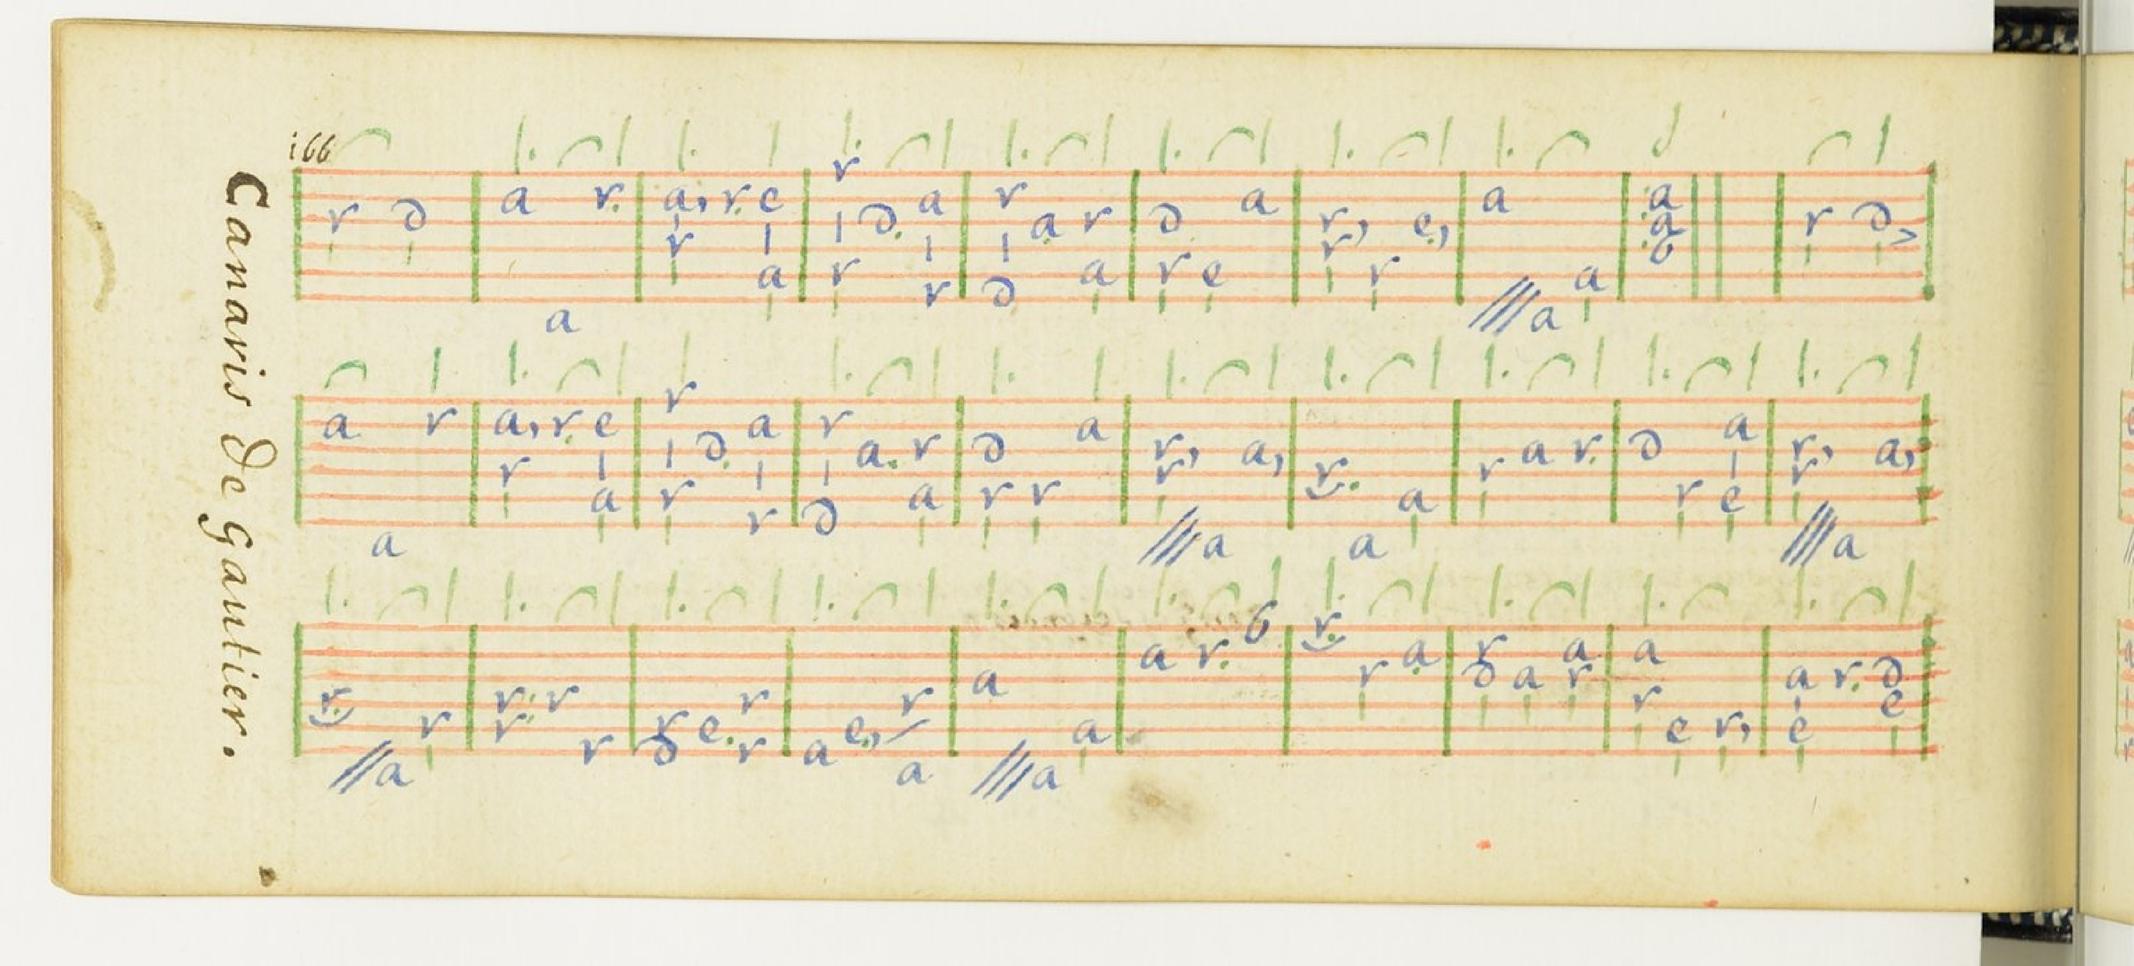 166
Canaris de gautier.
r d a r. a, r. e r d. a r a r d a r, e, a a a r d
a r r
r a a r a a
r r d r e r
a b
a ///a
a r a, r. e r d. a r a. r d a r, a, r. a r a r. d a r, a,
r a r r d a r r r a r e r
a ///a a ///a
r. r r: r r e. r a e, r a a r. b r. r a r a a a a r. d
r r d r a r r e r, e e
//a a ///a